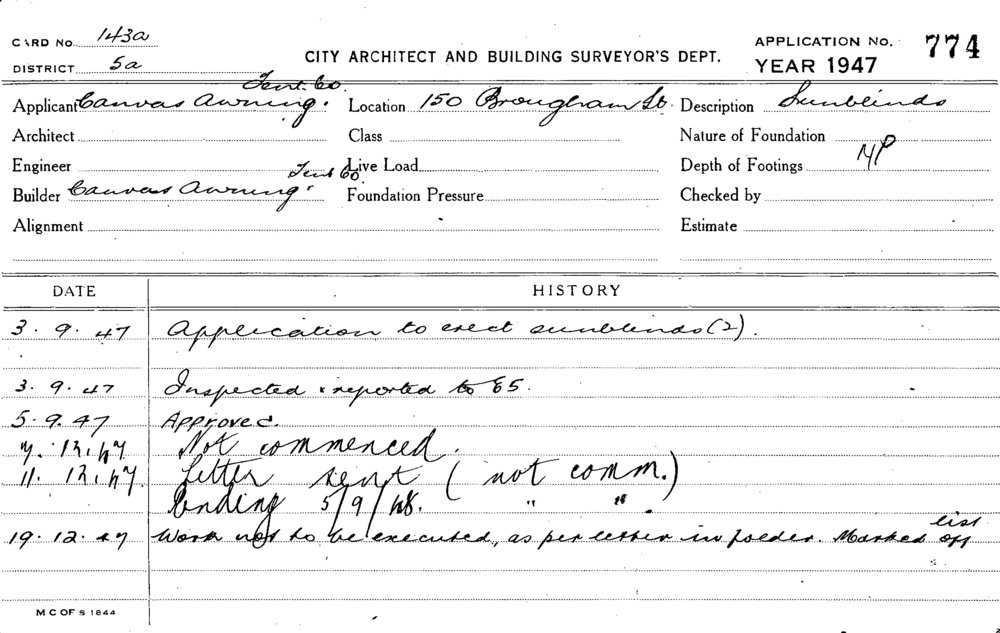 CARD No. 143a
DISTRICT 5a
CITY ARCHITECT AND BUILDING SURVEYOR'S DEPT.
APPLICATION No. 774
YEAR 1947
Applicant Canvas Awning. Tent. Co. Location 150 Brougham St. Description Sunblinds
Architect Class Nature of Foundation
Engineer Live Load Depth of Footings
Builder Canvas Awning. Tent Co. Foundation Pressure Checked by
Alignment Estimate
DATE HISTORY
3. 9. 47 Application to erect sunblinds (2).
3. 9. 47 Inspected & reported to
5. 9. 47 Approved.
9. 12. 47 Not commenced.
11. 12. 47 Letter sent (not comm.)
Ending 5/9/48. " ".
19. 12. 47 Work not to be executed, as per letter in folder. Marked off list
M C OF S 1844